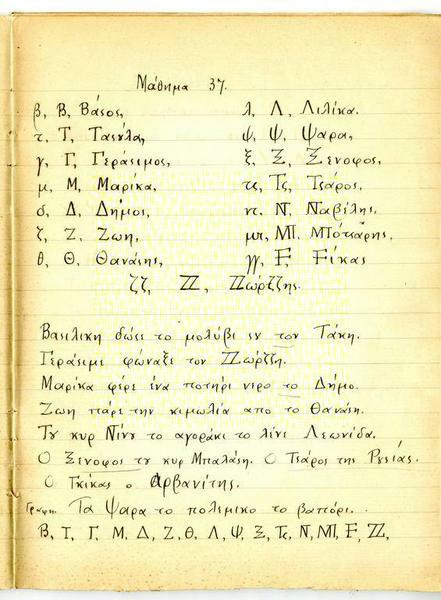 Μάθημα 37.
β, Β, Βάσος, λ, Λ, Λιλίκα.
τ, Τ, Τασύλα, ψ, Ψ, Ψαρα,
γ, Γ, Γεράσιμος, ξ, Ξ, Ξενοφος,
μ, Μ, Μαρίκα, τς, Τς, Τσάρος,
δ, Δ, Δήμος, ντ, Ν,
ζ, Ζ, Ζωη, μπ, ΜΠ,
θ, Θ, Θανάσης, γγ, F, Fίκας
ζζ, ΖΖ, ΖΖώρζζης.
Βασιλικη δώσε το μολύβι εν τον Τάκη.
Γεράσιμε φώναξε τον ΖΖώρζζη.
Μαρίκα φέρε ένα ποτήρι νερο το Δήμο.
Ζωη πάρε την κιμωλία απο το Θανάση.
Τυ κυρ Νίνυ το αγοράκι το λένι Λεωνίδα.
Ο Ξενοφος τυ κυρ Μπαλάση. Ο Τσάρος της Ρυσίας.
Ο Γκίκας ο Αρβανίτης.
Γραφη. Τα Ψαρα το πολεμικο το βαπόρι.
Β, Τ, Γ, Μ, Δ, Ζ, Θ, Λ, Ψ, Ξ, Τς, Ν, ΜΠ, F, ΖΖ,